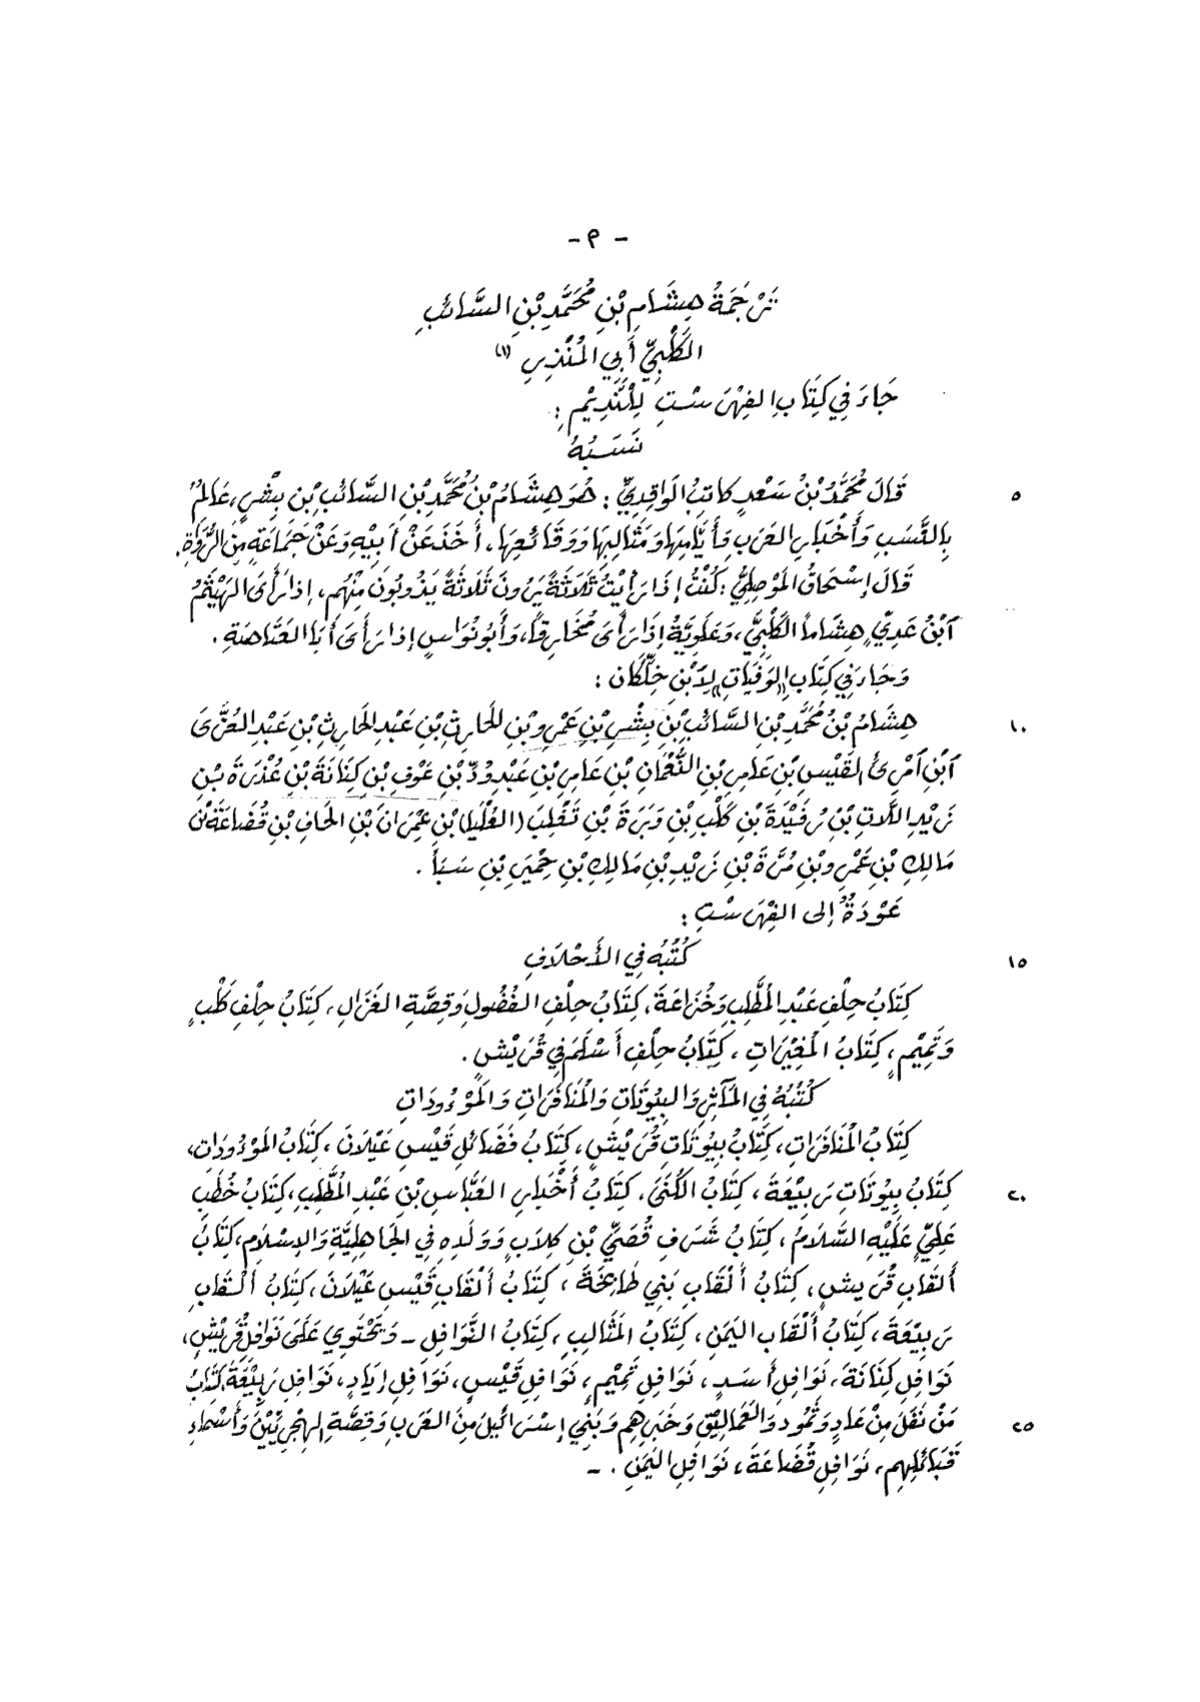 - ٩ -
تَرْجَمَةُ هِشَامِ بْنِ مُحَمَّدِ بْنِ السَّائِبِ
الكَلْبِيِّ أَبِي المُنْذِرِ (١)
جَاءَ فِي كِتَابِ الفِهْرَسْتِ لِلنَّدِيْمِ :
نَسَبُهُ
٥ قَالَ مُحَمَّدُ بْنُ سَعْدٍ كَاتِبُ الوَاقِدِيِّ : هُوَ هِشَامُ بْنُ مُحَمَّدِ بْنِ السَّائِبِ بْنِ بِشْرٍ، عَالِمٌ
بِالنَّسَبِ وَأَخْبَارِ العَرَبِ وَأَيَّامِهَا وَمَثَالِبِهَا وَوَقَائِعِهَا، أَخَذَ عَنْ أَبِيْهِ وَعَنْ جَمَاعَةٍ مِنَ الرُّوَاةِ.
قَالَ إِسْحَاقُ المَوْصِلِيُّ : كُنْتُ إِذَا رَأَيْتُ ثَلَاثَةً يَرَوْنَ ثَلَاثَةً يَذُوبُونَ مِنْهُم، إِذَا رَأَى الهَيْثَمُ
ٱبْنُ عَدِيٍّ هِشَاماً الكَلْبِيَّ، وَعَلَوِيَّةُ إِذَا رَأَى مُخَارِقاً، وَأَبُو نُوَاسٍ إِذَا رَأَى أَبَا العَتَاهِيَةِ.
وَجَاءَ فِي كِتَابِ "الوَفَيَاتِ" لِابْنِ خِلِّكَان :
١٠ هِشَامُ بْنُ مُحَمَّدِ بْنِ السَّائِبِ بْنِ بِشْرِ بْنِ عَمْرِو بْنِ الحَارِثِ بْنِ عَبْدِ الحَارِثِ بْنِ عَبْدِ العُزَّى
ٱبْنِ ٱمْرِئِ القَيْسِ بْنِ عَامِرِ بْنِ النُّعْمَانِ بْنِ عَامِرِ بْنِ عَبْدِ وُدِّ بْنِ عَوْفِ بْنِ كِنَانَةَ بْنِ عُذْرَةَ بْنِ
زَيْدِ اللَّاتِ بْنِ رُفَيْدَةَ بْنِ كَلْبِ بْنِ وَبَرَةَ بْنِ تَغْلِبَ (الغُلَبَا) بْنِ عِمْرَانَ بْنِ الحَافِ بْنِ قُضَاعَةَ بْنِ
مَالِكِ بْنِ عَمْرِو بْنِ مُرَّةَ بْنِ زَيْدِ بْنِ مَالِكِ بْنِ حِمْيَرِ بْنِ سَبَأَ .
عَوْدَةٌ إِلى الفِهْرَسْتِ :
١٥ كُتُبُهُ فِي الأَحْلَافِ
كِتَابُ حِلْفِ عَبْدِ المُطَّلِبِ وَخُزَاعَةَ، كِتَابُ حِلْفِ الفُضُولِ وَقِصَّةِ الغَزَالِ، كِتَابُ حِلْفِ كَلْبٍ
وَتَمِيْمٍ، كِتَابُ المُغِيْرَاتِ، كِتَابُ حِلْفِ أَسْلَمَ فِي قُرَيْشٍ .
كُتُبُهُ فِي المَآثِرِ وَالبُيُوتَاتِ وَالمُنَافَرَاتِ وَالمَوْءُودَاتِ
كِتَابُ المُنَافَرَاتِ، كِتَابُ بُيُوتَاتِ قُرَيْشٍ، كِتَابُ فَضَائِلِ قَيْسِ عَيْلَانَ، كِتَابُ المَوْءُودَاتِ،
٢٠ كِتَابُ بُيُوتَاتِ رَبِيْعَةَ، كِتَابُ الكُنَى، كِتَابُ أَخْبَارِ العَبَّاسِ بْنِ عَبْدِ المُطَّلِبِ، كِتَابُ خُطَبِ
عَلِيٍّ عَلَيْهِ السَّلَامُ، كِتَابُ شَرَفِ قُصَيِّ بْنِ كِلَابٍ وَوَلَدِهِ فِي الجَاهِلِيَّةِ وَالإِسْلَامِ، كِتَابُ
أَلقَابِ قُرَيْشٍ، كِتَابُ أَلْقَابِ بَنِي طَابِخَةَ، كِتَابُ أَلقَابِ قَيْسِ عَيْلَانَ، كِتَابُ أَلْقَابِ
رَبِيْعَةَ، كِتَابُ أَلْقَابِ اليَمَنِ، كِتَابُ المَثَالِبِ، كِتَابُ النَّوَافِلِ - وَيَحْتَوِي عَلَى نَوَافِلِ قُرَيْشٍ،
نَوَافِلِ كِنَانَةَ، نَوَافِلِ أَسَدٍ، نَوَافِلِ تَمِيْمٍ، نَوَافِلِ قَيْسٍ، نَوَافِلِ إِيَادٍ، نَوَافِلِ رَبِيْعَةَ، كِتَابُ
٢٥ مَنْ نَقَلَ مِنْ عَادٍ وَثَمُودَ وَالعَمَالِيْقِ وَجُرْهُمٍ وَبَنِي إِسْرَائِيلَ مِنَ العَرَبِ وَقِصَّةِ الهِجْرِيِّيْنَ وَأَسْمَاءِ
قَبَائِلِهِم، نَوَافِلِ قُضَاعَةَ، نَوَافِلِ اليَمَنِ . -